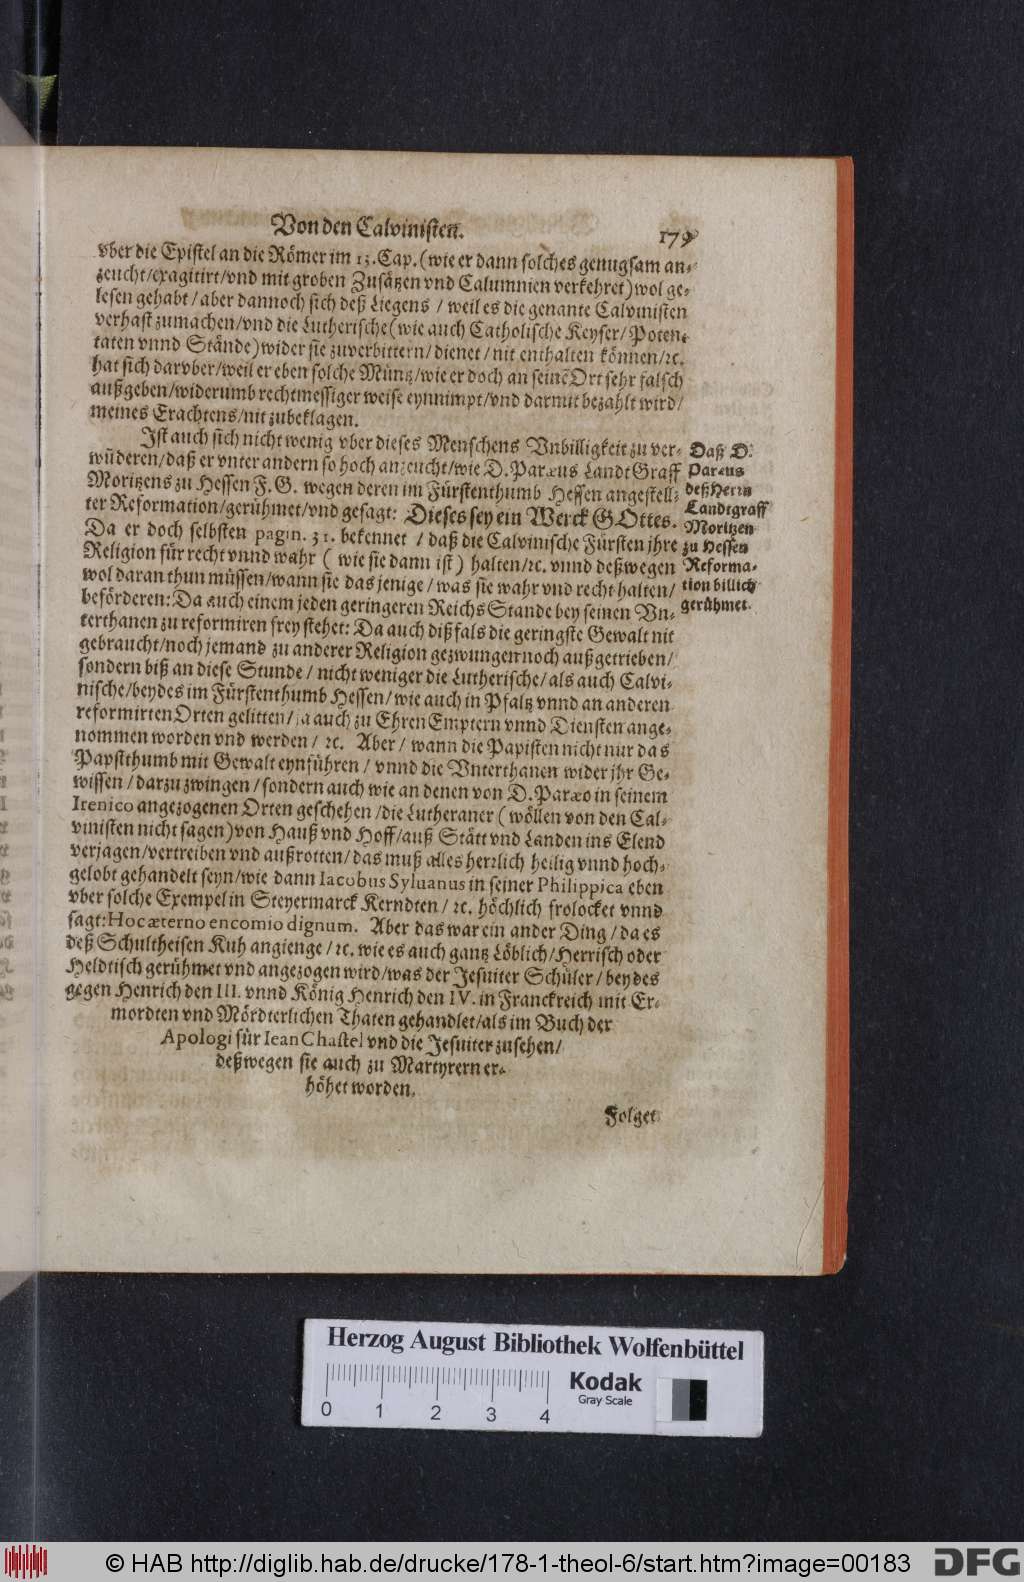 Von den Calvinisten.
179
vber die Epistel an die Römer im 13. Cap. (wie er dann solches genugsam an-
zeucht/exagitirt/vnd mit groben Zusätzen vnd Calumnien verkehret) wol ge-
lesen gehabt/aber dannoch sich deß Liegens/weil es die genante Calvinisten
verhast zumachen/vnd die Lutherische (wie auch Catholische Keyser/Poten-
taten vnnd Stände) wider sie zuverbittern/dienet/nit enthalten können/ꝛc.
hat sich darvber/weil er eben solche Müntz/wie er doch an seinē Ort sehr falsch
außgeben/widerumb rechtmessiger weise eynnimpt/vnd darmit bezahlt wird/
meines Erachtens/nit zubeklagen.
Ist auch sich nicht wenig vber dieses Menschens Vnbilligkeit zu ver-
wūderen/daß er vnter andern so hoch anzeucht/wie D. Paræus LandtGraff
Moritzens zu Hessen F. G. wegen deren im Fürstenthumb Hessen angestell-
ter Reformation/gerühmet/vnd gesagt: Dieses sey ein Werck GOttes.
Da er doch selbsten pagin. 31. bekennet/daß die Calvinische Fürsten jhre
Religion für recht vnnd wahr (wie sie dann ist) halten/ꝛc. vnnd deßwegen
wol daran thun müssen/wann sie das jenige/was sie wahr vnd recht halten/
beförderen: Da auch einem jeden geringeren ReichsStande bey seinen Vn-
terthanen zu reformiren frey stehet: Da auch diß fals die geringste Gewalt nit
gebraucht/noch jemand zu anderer Religion gezwungen noch außgetrieben/
sondern biß an diese Stunde/nicht weniger die Lutherische/als auch Calvi-
nische/beydes im Fürstenthumb Hessen/wie auch in Pfaltz vnnd an anderen
reformirten Orten gelitten/ja auch zu Ehren Emptern vnnd Diensten ange-
nommen worden vnd werden/ꝛc. Aber/wann die Papisten nicht nur das
Papstthumb mit Gewalt eynführen/vnnd die Vnterthanen wider jhr Ge-
wissen/darzu zwingen/sondern auch wie an denen von D. Paræo in seinem
Irenico angezogenen Orten geschehen/die Lutheraner (wöllen von den Cal-
vinisten nicht sagen) von Hauß vnd Hoff/auß Stätt vnd Landen ins Elend
verjagen/vertreiben vnd außrotten/das muß alles herrlich heilig vnnd hoch-
gelobt gehandelt seyn/wie dann Iacobus Syluanus in seiner Philippica eben
vber solche Exempel in Steyermarck Kerndten/ꝛc. höchlich frolocket vnnd
sagt: Hoc æterno encomio dignum. Aber das war ein ander Ding/da es
deß Schultheisen Kuh angienge/ꝛc. wie es auch gantz Löblich/Herrisch oder
Heldtisch gerühmet vnd angezogen wird/was der Jesuiter Schüler/beydes
gegen Henrich den III. vnnd König Henrich den IV. in Franckreich mit Er-
mordten vnd Mördterlichen Thaten gehandlet/als im Buch der
Apologi für Iean Chastel vnd die Jesuiter zusehen/
deßwegen sie auch zu Martyrern er-
höhet worden.
Folget
Daß D.
Paræus
deß Herrn
Landtgraff
Moritzen
zu Hessen
Reforma-
tion billich
gerühmet.
Herzog August Bibliothek Wolfenbüttel
Kodak
Gray Scale
0 1 2 3 4
© HAB http://diglib.hab.de/drucke/178-1-theol-6/start.htm?image=00183
DFG